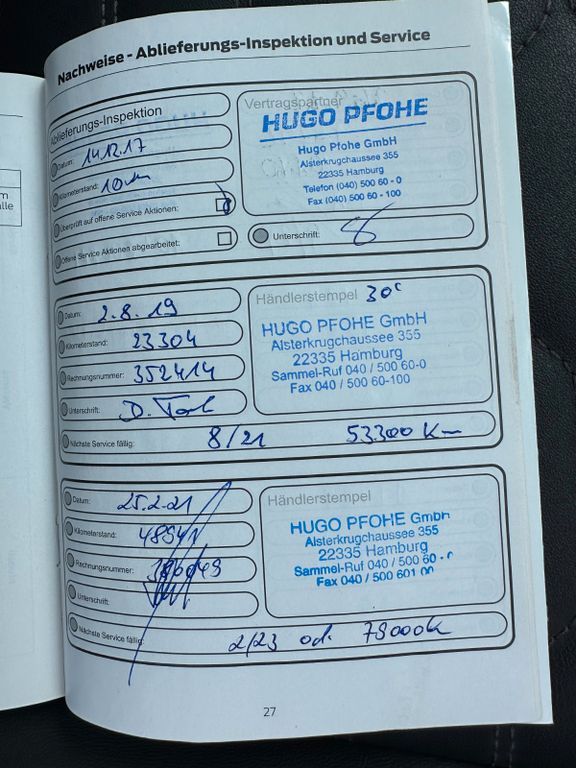 Nachweise - Ablieferungs-Inspektion und Service
Ablieferungs-Inspektion
Datum: 14.12.17
Kilometerstand: 10 km
Überprüft auf offene Service Aktionen:
Offene Service Aktionen abgearbeitet:
Vertragspartner
HUGO PFOHE
Hugo Pfohe GmbH
Alsterkrugchaussee 355
22335 Hamburg
Telefon (040) 500 60 - 0
Fax (040) 500 60 - 100
Unterschrift:
Datum: 2.8.19
Kilometerstand: 23304
Rechnungsnummer: 352414
Unterschrift:
Händlerstempel 30c
HUGO PFOHE GmbH
Alsterkrugchaussee 355
22335 Hamburg
Sammel-Ruf 040 / 500 60-0
Fax 040 / 500 60-100
Nächste Service fällig: 8/21 53300 Km
Datum: 25.2.21
Kilometerstand:
Rechnungsnummer:
Unterschrift:
Händlerstempel
HUGO PFOHE GmbH
Alsterkrugchaussee 355
22335 Hamburg
Sammel-Ruf 040 / 500 60 - 0
Fax 040 / 500 601 00
Nächste Service fällig: 2/23 od. 78000k
27